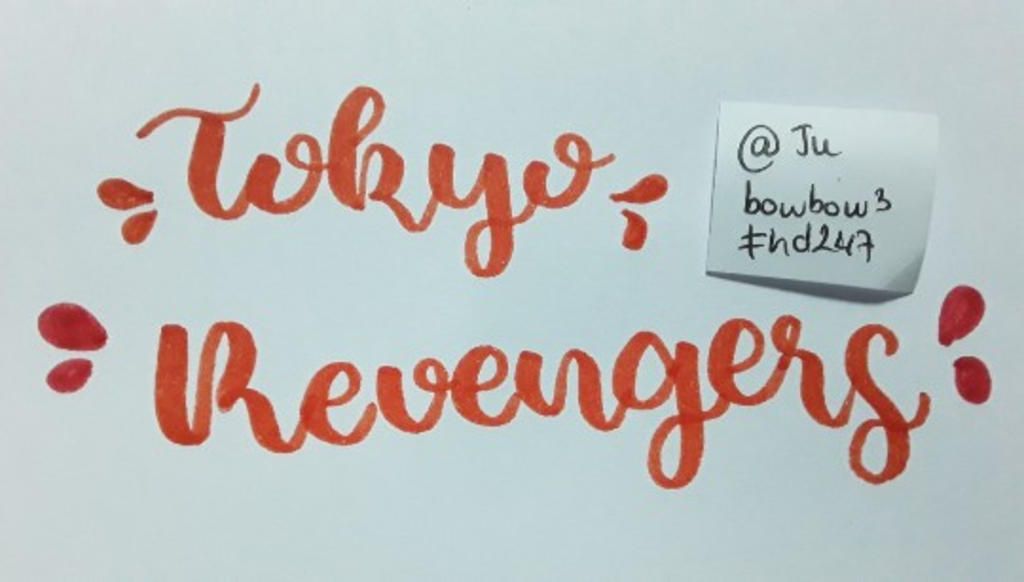 Tokyo
Revengers
@Ju
bowbow3
#hd247